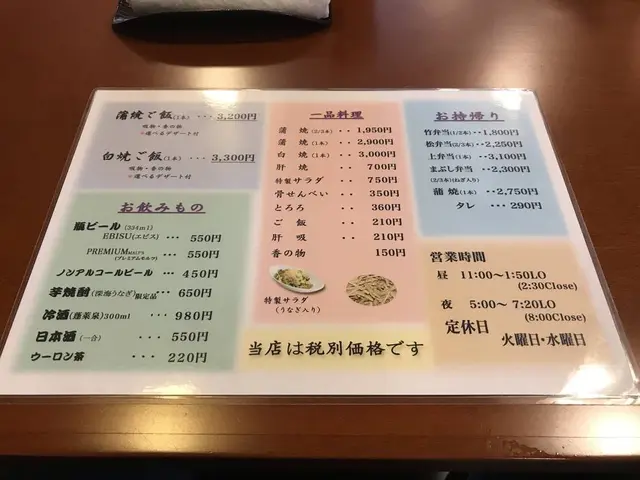 蒲焼ご飯(1本) ‥‥ 3,200円
吸物・香の物
※選べるデザート付
白焼ご飯(1本) ‥ 3,300円
吸物・香の物
※選べるデザート付
お飲みもの
瓶ビール(334ml)
EBISU(エビス) ‥‥ 550円
PREMIUM MALT'S
(プレミアムモルツ) ‥‥ 550円
ノンアルコールビール ‥‥ 450円
芋焼酎(深海うなぎ)限定品 ‥‥ 650円
冷酒(蓬莱泉)300ml ‥‥ 980円
日本酒(一合) ‥‥ 550円
ウーロン茶 ‥‥ 220円
一品料理
蒲 焼(2/3本) ‥ 1,950円
蒲 焼(1本) ‥ 2,900円
白 焼(1本) ‥ 3,000円
肝 焼 ‥ 700円
特製サラダ ‥ 750円
骨せんべい ‥ 350円
とろろ ‥ 360円
ご 飯 ‥ 210円
肝 吸 ‥ 210円
香の物 150円
特製サラダ
(うなぎ入り)
お持帰り
竹弁当(1/2本)‥1,800円
松弁当(2/3本)‥2,250円
上弁当(1本)‥3,100円
まぶし弁当 ‥2,300円
(2/3本)(ねぎ入り)
蒲 焼(1本)‥2,750円
タレ ‥290円
営業時間
昼 11:00〜1:50LO
(2:30Close)
夜 5:00〜7:20LO
(8:00Close)
定休日
火曜日・水曜日
当店は税別価格です